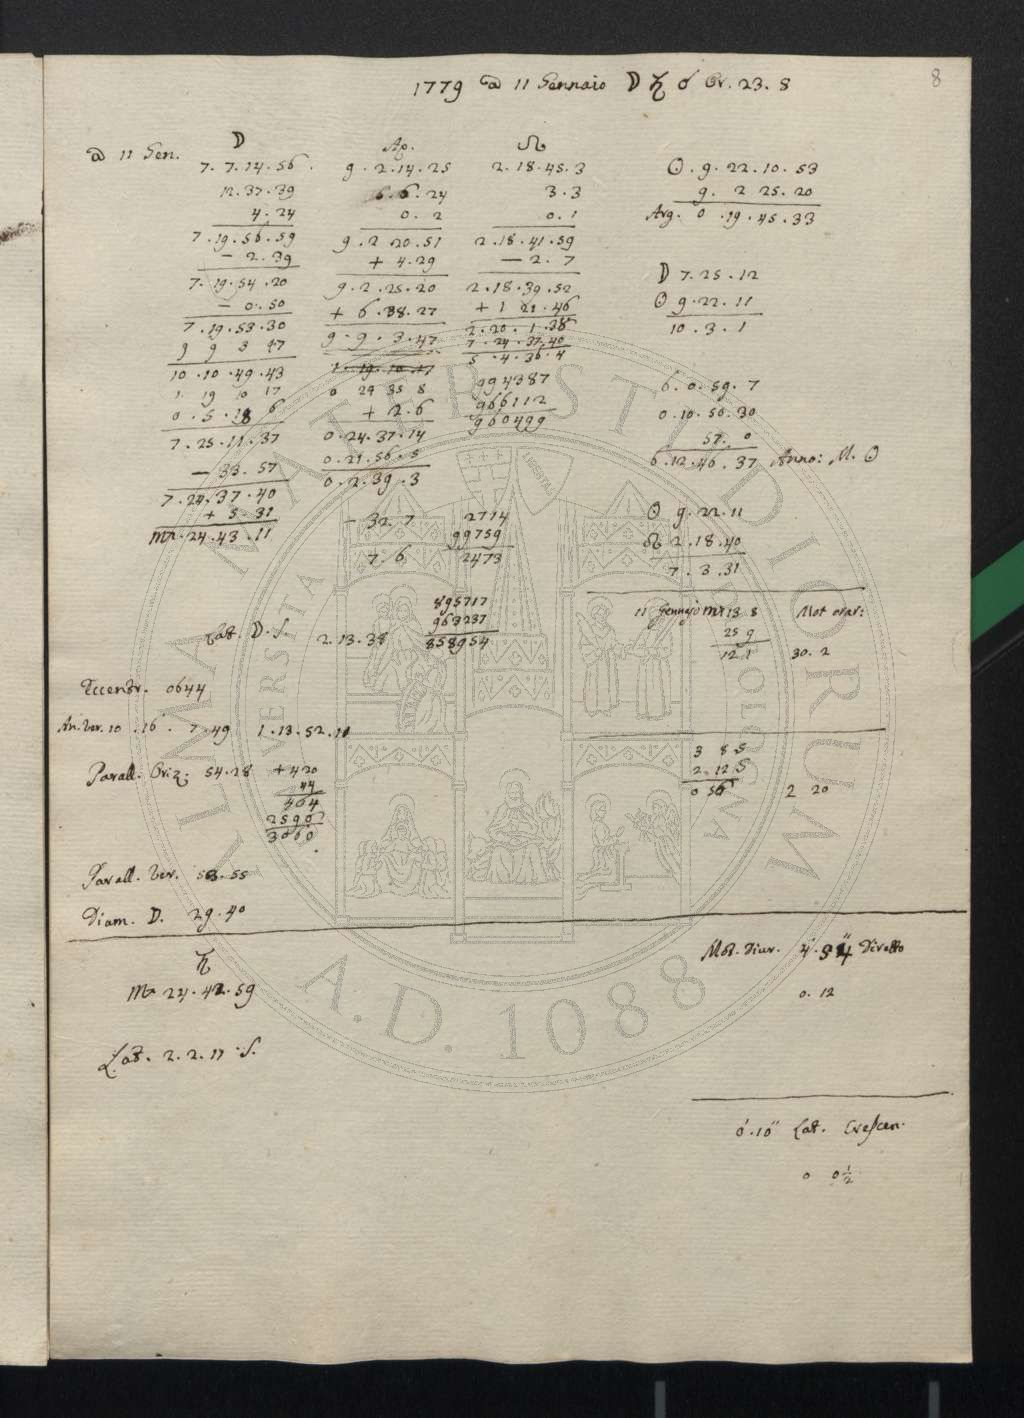 8
1779 a 11 Gennaio ☽ ♄ ☌ Or. 23. 8
a 11 Gen.
☽
7. 7. 14. 56
12. 37. 39
4. 24
7. 19. 56. 59
- 2. 39
7. 19. 54. 20
- 0. 50
7. 19. 53. 30
9 9 3 47
10. 10. 49. 43
1. 19 10 17
0. 5. 18 6
7. 25. 11. 37
- 33. 57
7. 24. 37. 40
+ 5. 31
♏ 24. 43. 11
Ap.
9. 2. 14. 25
6. 24
0. 2
9. 2 20. 51
+ 4. 29
9. 2. 25. 20
+ 6. 38. 27
9. 9. 3. 47
0 29 35 8
+ 2. 6
0. 24. 37. 14
0. 21. 56. 5
0. 2. 39. 3
- 32. 7
7. 6
☊
2. 18. 45. 3
3. 3
0. 1
2. 18. 41. 59
- 2. 7
2. 18. 39. 52
+ 1 21. 46
2. 20. 1. 38
7. 24. 37. 40
5. 4. 36. 4
994387
966112
960499
2714
99759
2473
☉. 9. 22. 10. 53
9. 2 25. 20
Arg. 0. 19. 45. 33
☽ 7. 25. 12
☉ 9. 22. 11
10. 3. 1
6. 0. 59. 7
0. 10. 50. 30
57. 0
6. 12. 46. 37 Anno: M. ☉
☉ 9. 22. 11
☊ 2. 18. 40
7. 3. 31
11 Gennajo ♏ 13 8 Mot orar:
25 9
12. 1 30. 2
Lat. ☽. S. 2. 13. 38
895717
963237
858954
Eccentr. 0644
An. ver. 10. 16. 7. 49 1. 13. 52. 11
Parall. Oriz: 54. 28 + 4 20
44
464
2590
3060
3 8 S
2. 12 S
0 56 2 20
Parall. ver. 53. 55
Diam. ☽. 29. 40
♄
♏ 24. 42. 59
Mot. Diur. 4'. 54'' Diretto
0. 12
Lat. 2. 2. 17. S.
0'. 10'' Lat. Crescen.
0 0½
ALMA MATER STUDIORUM
A.D. 1088